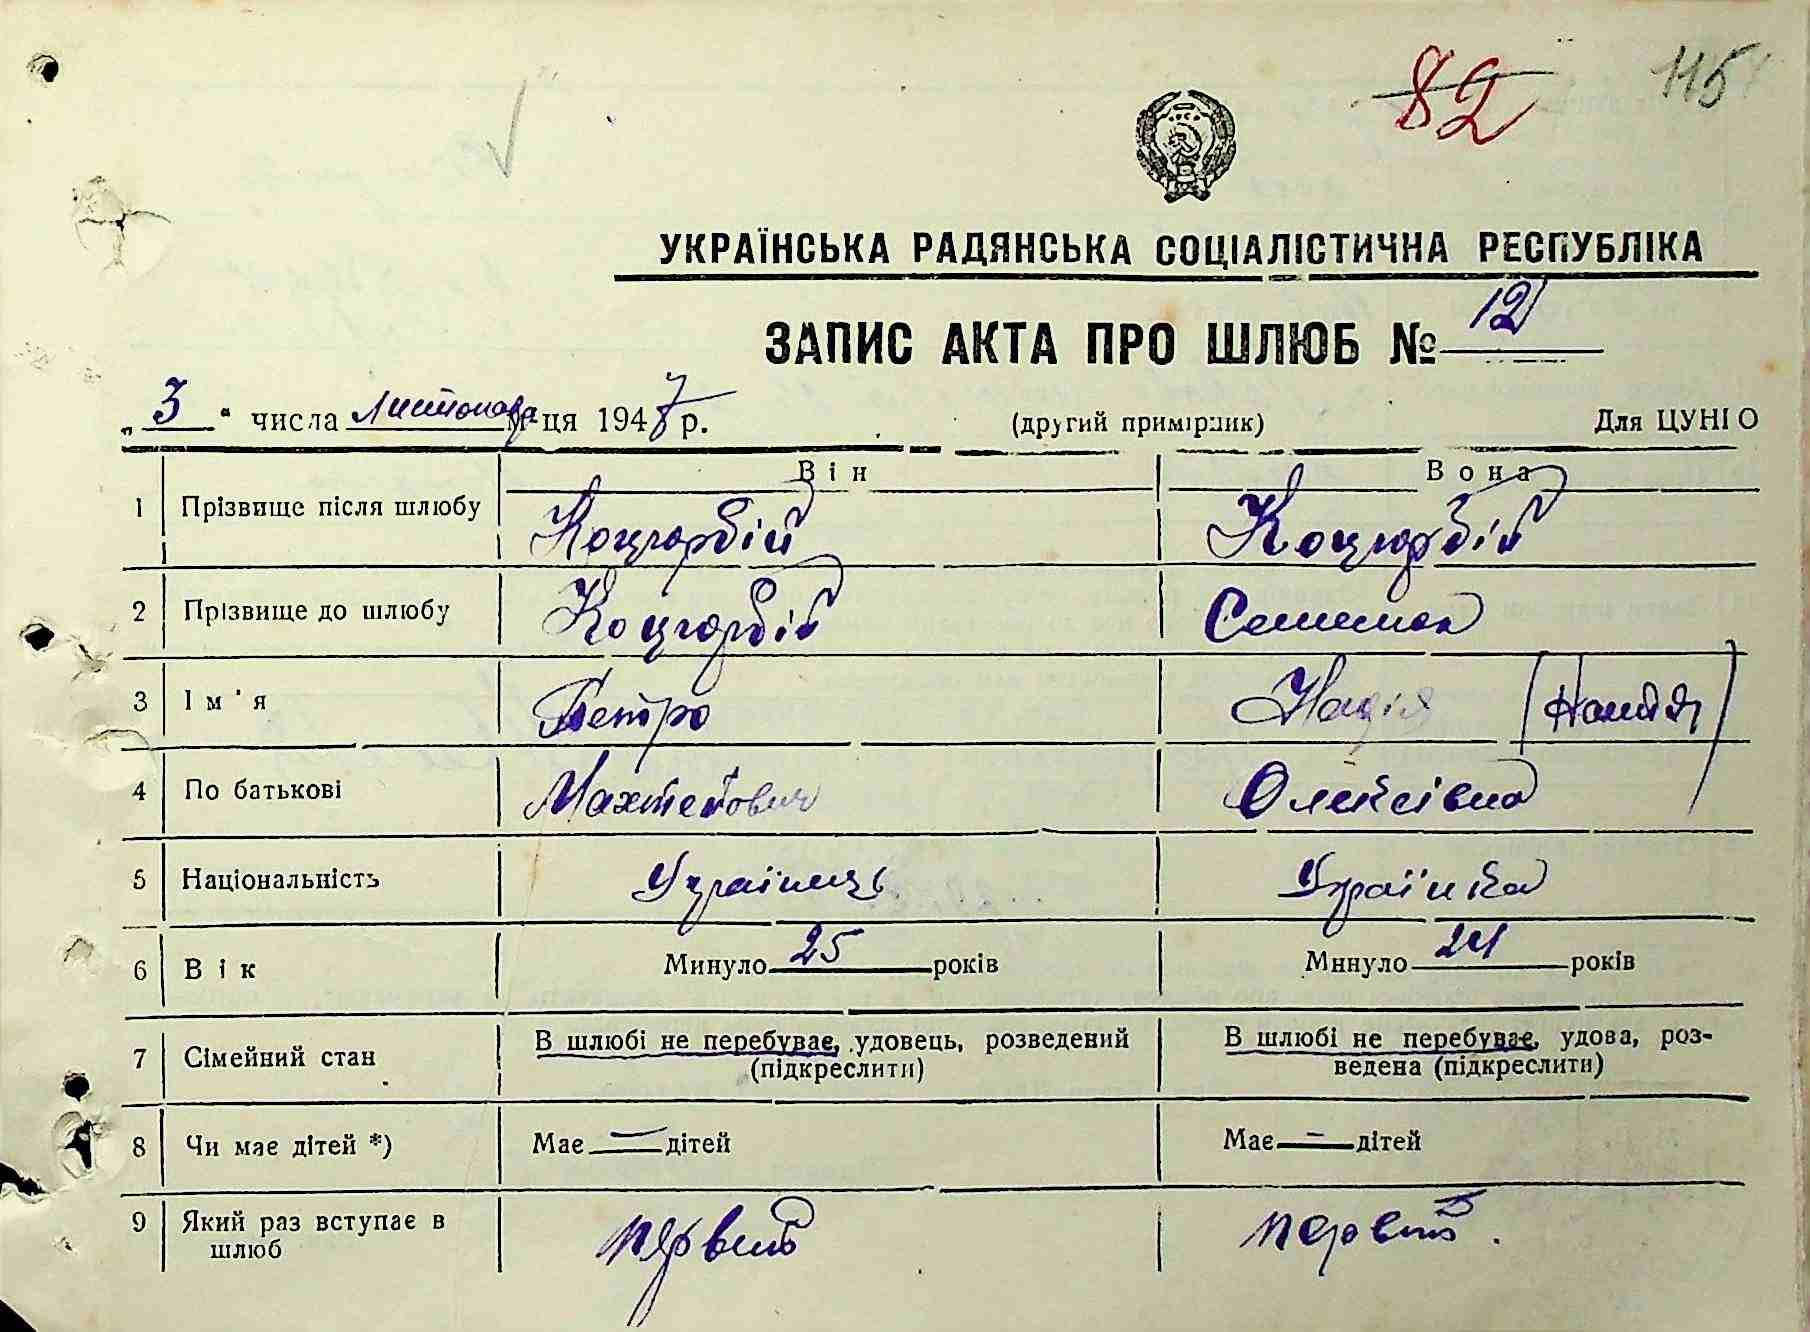 82 115
УКРАЇНСЬКА РАДЯНСЬКА СОЦІАЛІСТИЧНА РЕСПУБЛІКА
ЗАПИС АКТА ПРО ШЛЮБ № 12
„3" числа Листопада м-ця 1947 р. (другий примірник) Для ЦУНГО
Він Вона
1 Прізвище після шлюбу Коцюрбій Коцюрбій
2 Прізвище до шлюбу Коцюрбій
3 Ім'я Петро Надія
4 По батькові Олексіївна
5 Національність Українець Українка
6 Вік Минуло 25 років Минуло 24 років
7 Сімейний стан В шлюбі не перебуває, удовець, розведений В шлюбі не перебуває, удова, роз-
(підкреслити) ведена (підкреслити)
8 Чи має дітей *) Має — дітей Має — дітей
9 Який раз вступає в первий первий.
шлюб